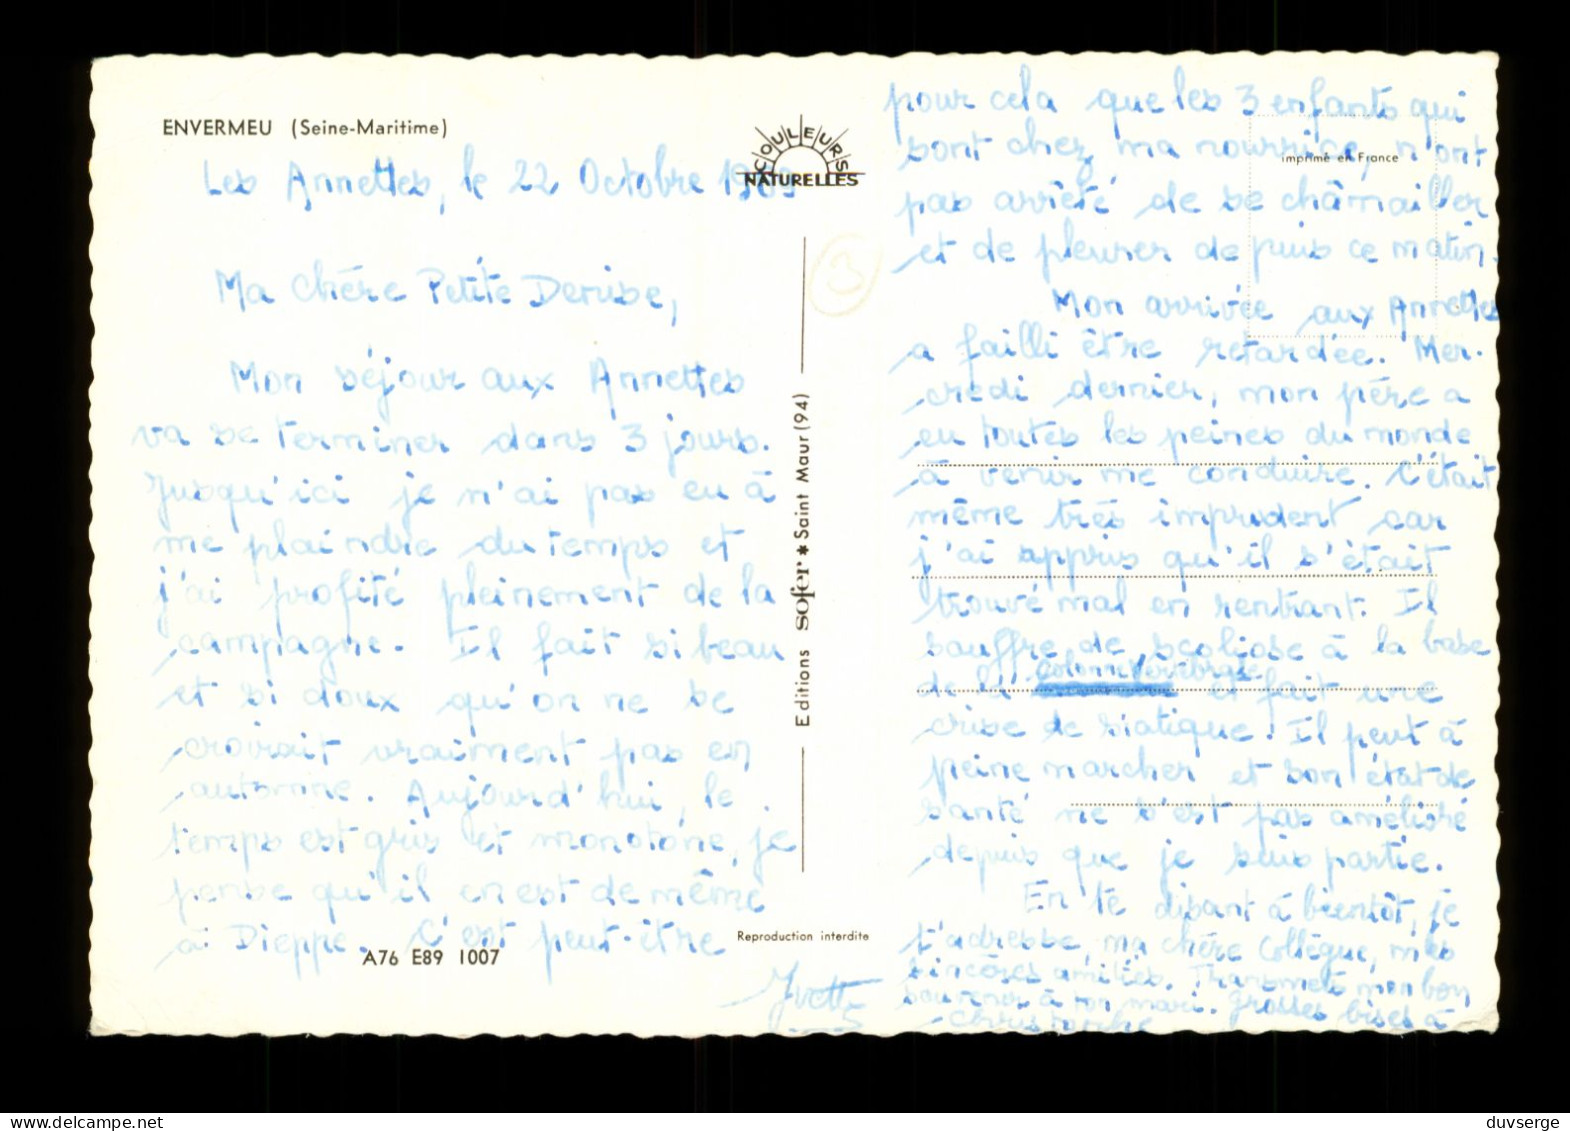 ENVERMEU (Seine-Maritime)
COULEURS
NATURELLES
Les Annettes, le 22 Octobre 1969
Ma chère Petite Denise,
Mon séjour aux Annettes
va se terminer dans 3 jours.
Jusqu'ici je n'ai pas eu à
me plaindre du temps et
j'ai profité pleinement de la
campagne. Il fait si beau
et si doux qu'on ne se
croirait vraiment pas en
automne. Aujourd'hui, le
temps est gris et monotone, je
pense qu'il en est de même
à Dieppe. C'est peut-être
A76 E89 1007
Editions sofer * Saint Maur (94)
Reproduction interdite
3
imprimé en France
pour cela que les 3 enfants qui
sont chez ma nourrice, n'ont
pas arrêté de se châmailler
et de pleurer depuis ce matin.
Mon arrivée aux Annettes
a failli être retardée. Mer-
credi dernier, mon père a
eu toutes les peines du monde
à venir me conduire. C'était
même très imprudent car
j'ai appris qu'il s'était
trouvé mal en rentrant. Il
souffre de scoliose à la base
de la colonne vertébrale et fait une
crise de siatique. Il peut à
peine marcher et son état de
santé ne s'est pas amélioré
depuis que je suis partie.
En te disant à bientôt, je
t'adresse, ma chère Collègue, mes
sincères amitiés. Transmets mon bon
souvenir à ton mari. Grosses bises à
Christophe
Yvette
delcampe.net
duvserge